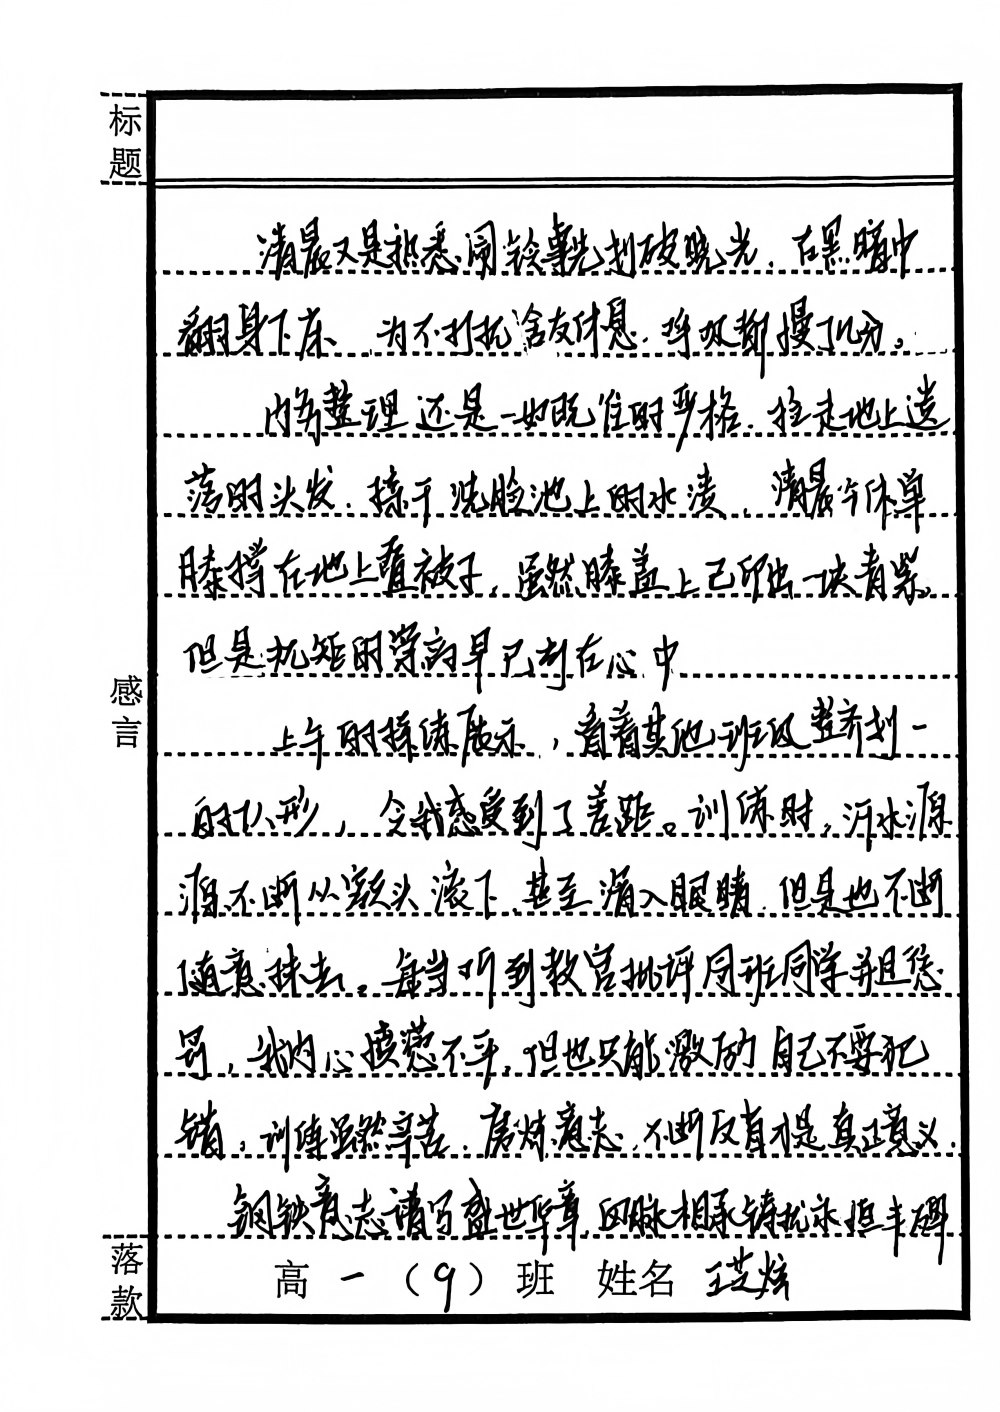 标题
清晨又是熟悉闹铃率先划破晓光，在黑暗中
翻身下床 为不打扰舍友休息，呼吸都慢了几分。
内务整理还是一如既往的严格，捡走地上遗
落的头发，擦干洗脸池上的水渍，清晨午休单
膝撑在地上叠被子，虽然膝盖上已印出一块青紫，
但是规矩的崇高早已刻在心中
感言
上午的操练展示，看着其他班级整齐划一
的队形，令我感受到了差距。训练时，汗水源
源不断从额头滚下，甚至滴入眼睛，但是也不断
随意抹去。每当听到教官批评同班同学并且惩
罚，我内心愤懑不平，但也只能激励自己不要犯
错，训练虽然辛苦，磨炼意志，不断反省才是真正意义，
钢铁意志谱写盛世华章，血脉相承铸就永恒丰碑
落款
高一（9）班 姓名 王芝炫